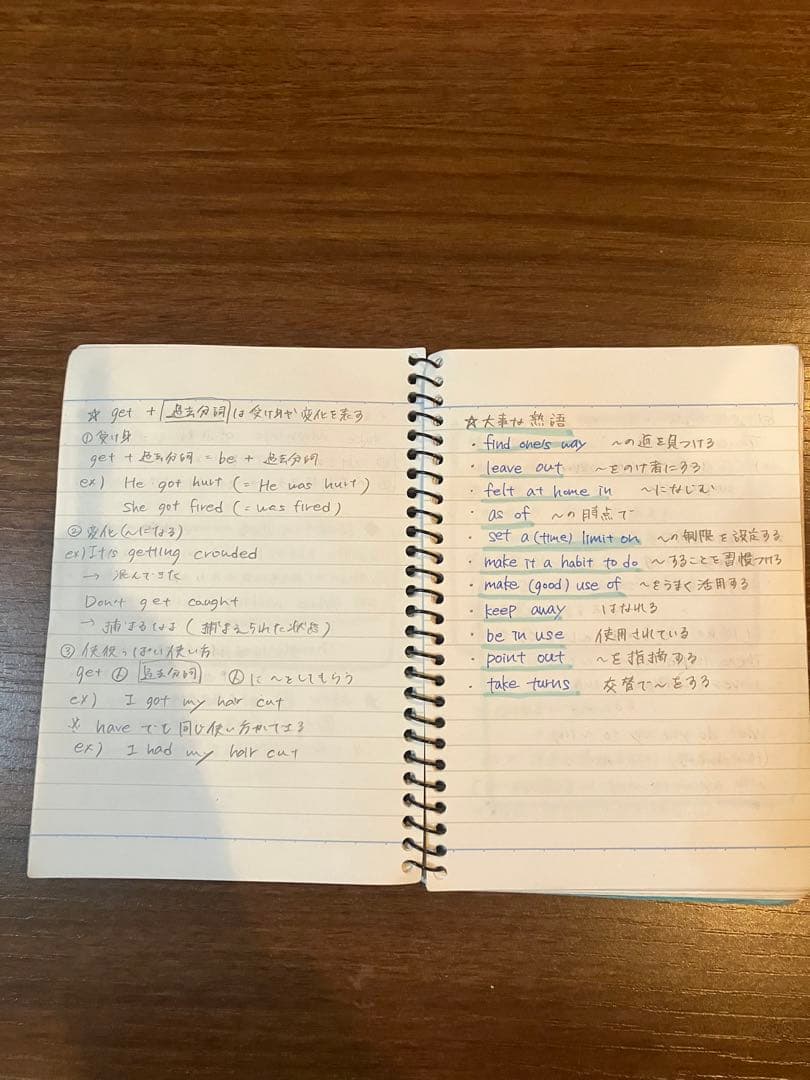 ☆ get + 過去分詞 は受け身や変化を表す
① 受け身
get + 過去分詞 = be + 過去分詞
ex) He got hurt (= He was hurt)
She got fired (= was fired)
② 変化 (〜になる)
ex) It is getting crouded
→ 混んできた
Don't get caught
→ 捕まるなよ (捕まえられた状態)
③ 使役っぽい使い方
get 人 過去分詞 人に〜としてもらう
ex) I got my hair cut
※ have でも同じ使い方ができる
ex) I had my hair cut
☆大事な熟語
・find one's way 〜の道を見つける
・leave out 〜をのけ者にする
・felt at home in 〜になじむ
・as of 〜の時点で
・set a (time) limit on 〜の制限を設定する
・make it a habit to do 〜することを習慣づける
・make (good) use of 〜をうまく活用する
・keep away はなれる
・be in use 使用されている
・point out 〜を指摘する
・take turns 交替で〜をする